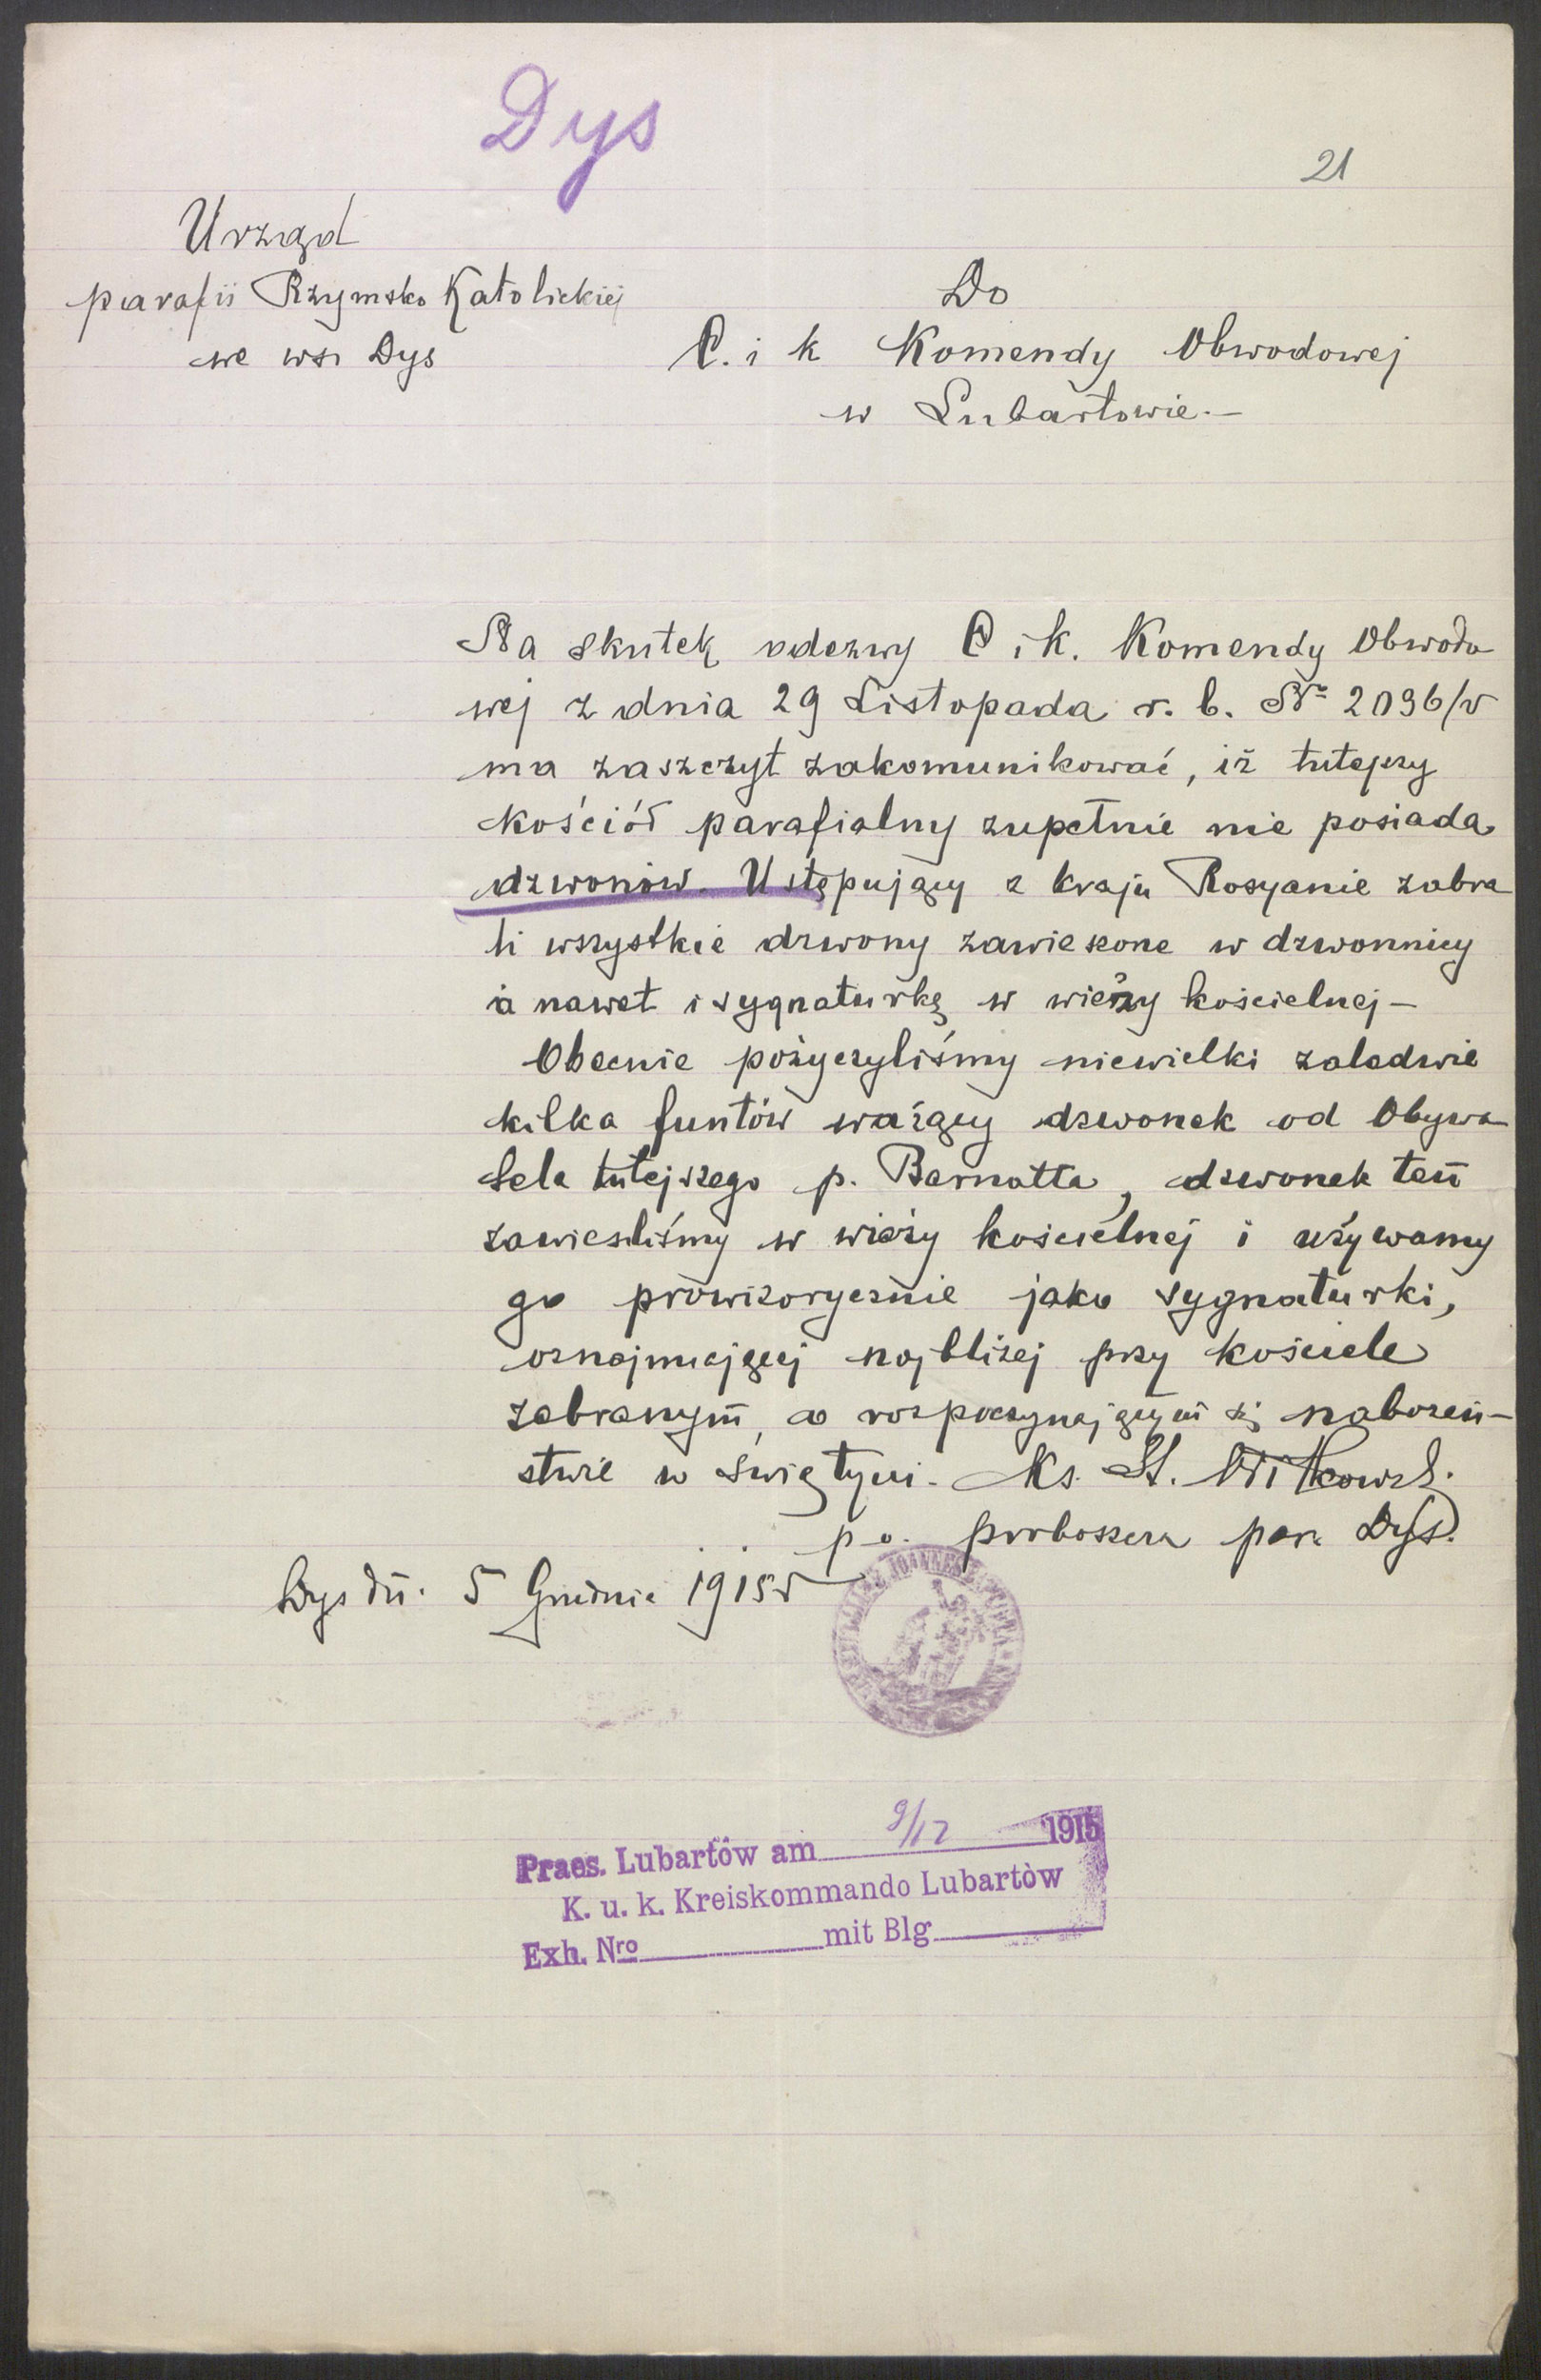 Dys
21
Urząd
parafii Rzymsko Katolickiej
we wsi Dys
Do
C. i k Komendy Obwodowej
w Lubartowie.—
Na skutek odezwy C i k. Komendy Obwodo
wej z dnia 29 Listopada r. b. Nr 2096/v
ma zaszczyt zakomunikować, iż tutejszy
kościół parafialny zupełnie nie posiada
dzwonów. Ustępujący z kraju Rosyanie zabra
li wszystkie dzwony zawieszone w dzwonnicy
a nawet i sygnaturkę w wieży kościelnej —
Obecnie pożyczyliśmy niewielki zaledwie
kilka funtów ważący dzwonek od Obywa
tela tutejszego p. Barnatta, dzwonek ten
zawiesiliśmy w wieży kościelnej i używamy
go prowizorycznie jako sygnaturki,
oznajmiającej najbliżej przy kościele
zebranym, o rozpoczynającym się nabożeń-
stwie w świątyni. Ks. St. Witkowski
p o. proboszcza par. Dys.
Dys dn. 5 Grudnia 1915 r
Praes. Lubartów am 9/12 1915
K. u. k. Kreiskommando Lubartów
Exh. Nro mit Blg